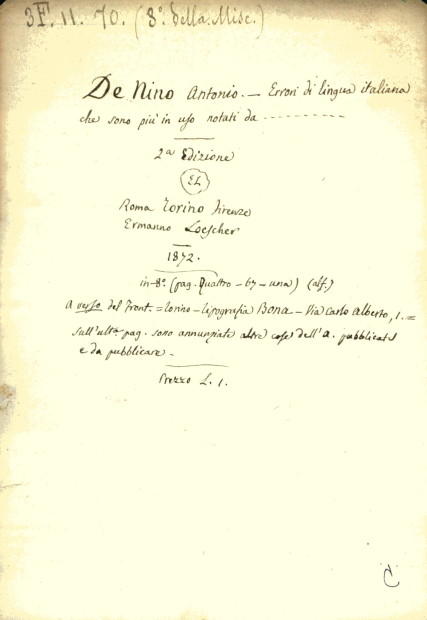 3F. 11. 70. (8º. della Misc.)
De Nino Antonio. — Errori di lingua italiana
che sono più in uso notati da ----------
2ª Edizione
EL
Roma Torino Firenze
Ermanno Loescher
1872.
in-8º. (pag. Quattro - 67 - una) (alf.)
A verso del Front. = Torino - Tipografia Bona - Via Carlo Alberto, 1. =
sull'ultª. pag. sono annunziate altre cose dell'A. pubblicate
e da pubblicare -
Prezzo L. 1.
C